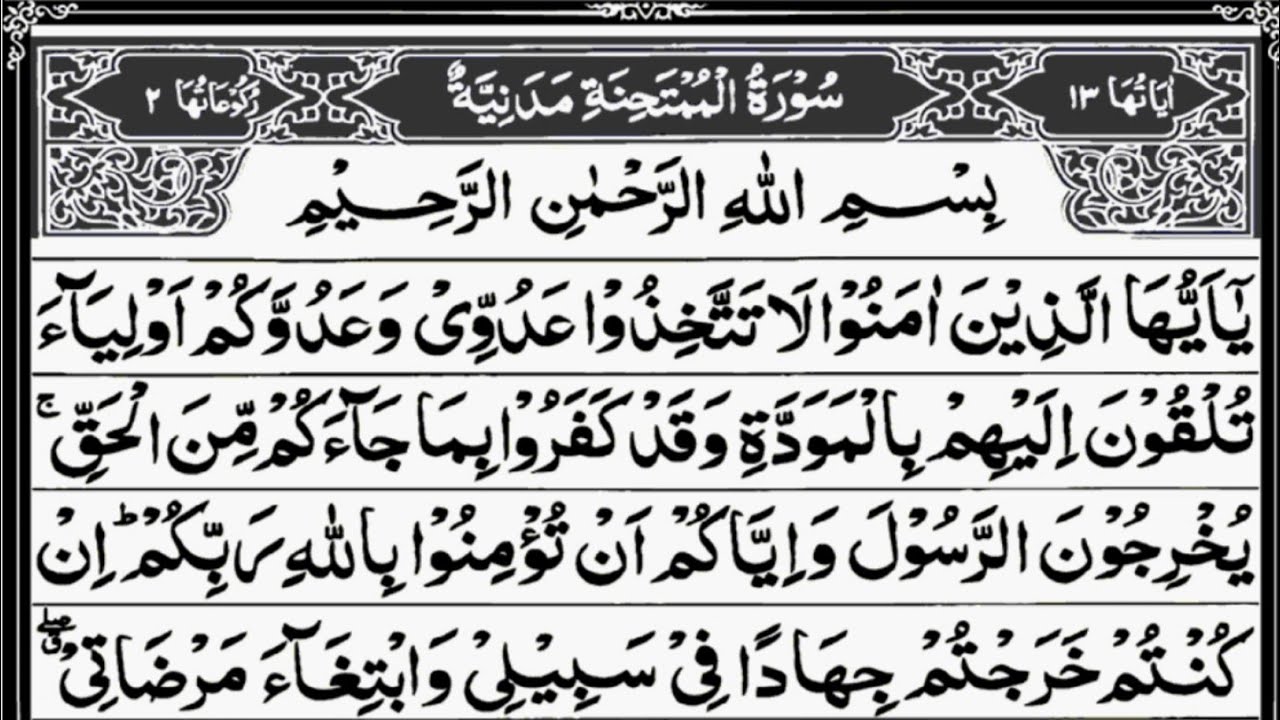 اٰيَاتُهَا ١٣ سُوْرَةُ الْمُمْتَحِنَةِ مَدَنِيَّةٌ رُكُوْعَاتُهَا ٢
بِسْمِ اللّٰهِ الرَّحْمٰنِ الرَّحِيْمِ
يٰۤاَيُّهَا الَّذِيْنَ اٰمَنُوْا لَا تَتَّخِذُوْا عَدُوِّىْ وَعَدُوَّكُمْ اَوْلِيَآءَ
تُلْقُوْنَ اِلَيْهِمْ بِالْمَوَدَّةِ وَقَدْ كَفَرُوْا بِمَا جَآءَكُمْ مِّنَ الْحَقِّ ۚ
يُخْرِجُوْنَ الرَّسُوْلَ وَاِيَّاكُمْ اَنْ تُؤْمِنُوْا بِاللّٰهِ رَبِّكُمْ ؕ اِنْ
كُنْتُمْ خَرَجْتُمْ جِهَادًا فِىْ سَبِيْلِىْ وَابْتِغَآءَ مَرْضَاتِىْ ۖ ق